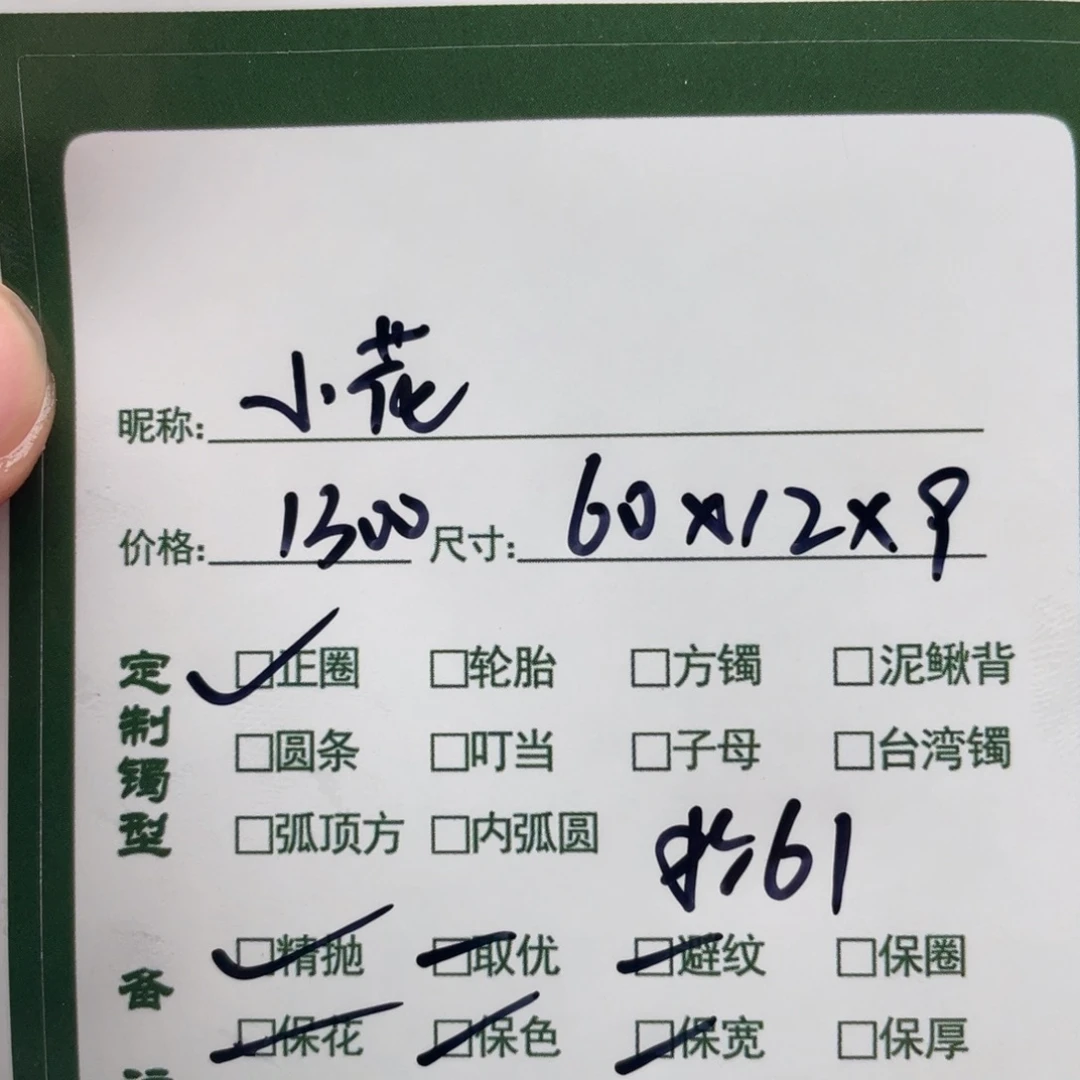 昵称: 小花
价格: 1300 尺寸: 60×12×9
定制镯型
□正圈 □轮胎 □方镯 □泥鳅背
□圆条 □叮当 □子母 □台湾镯
□弧顶方 □内弧圆 61
备
□精抛 □取优 □避纹 □保圈
□保花 □保色 □保宽 □保厚